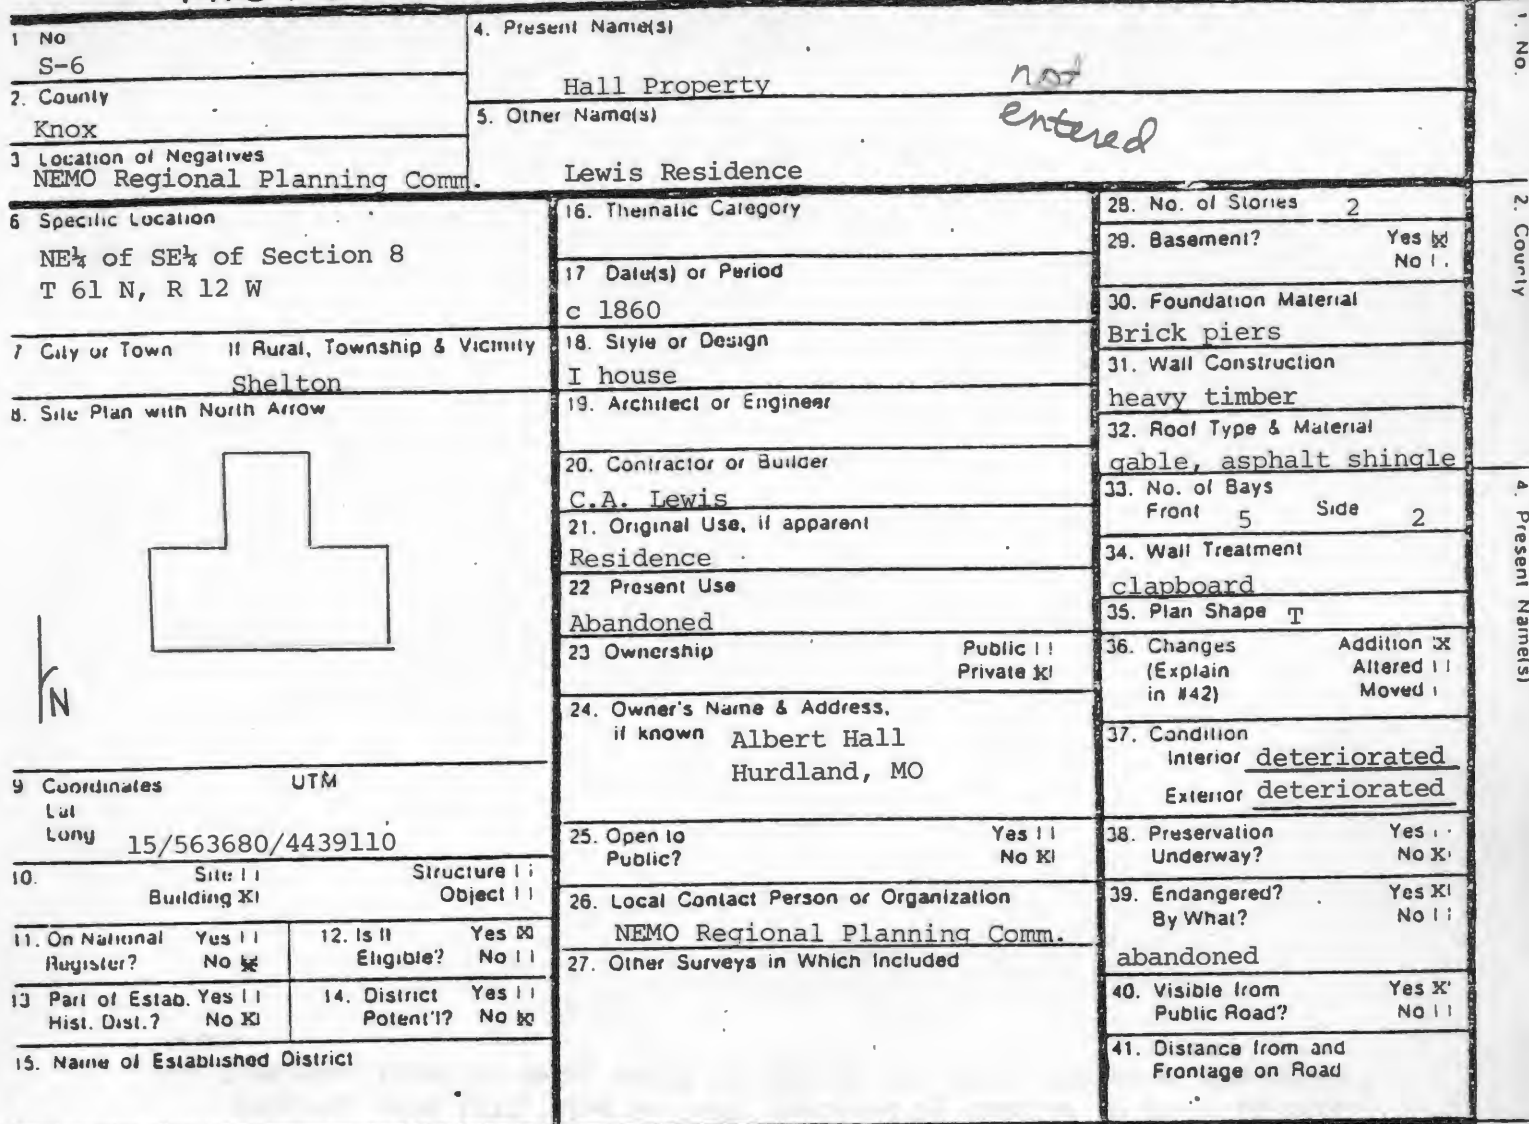 1 No
S-6
2. County
Knox
3 Location of Negatives
NEMO Regional Planning Comm.
4. Present Name(s)
Hall Property
5. Other Name(s)
Lewis Residence
not
entered
6 Specific Location
NE¼ of SE¼ of Section 8
T 61 N, R 12 W
7 City or Town If Rural, Township & Vicinity
Shelton
8. Site Plan with North Arrow
N
9 Coordinates UTM
Lat
Long 15/563680/4439110
10. Site Structure
Building X Object
11. On National Yes 12. Is It Yes X
Register? No X Eligible? No
13 Part of Estab. Yes 14. District Yes
Hist. Dist.? No X Potent'l? No X
15. Name of Established District
16. Thematic Category
17 Date(s) or Period
c 1860
18. Style or Design
I house
19. Architect or Engineer
20. Contractor or Builder
C.A. Lewis
21. Original Use, if apparent
Residence
22 Present Use
Abandoned
23 Ownership Public
Private X
24. Owner's Name & Address,
if known Albert Hall
Hurdland, MO
25. Open to Yes
Public? No X
26. Local Contact Person or Organization
NEMO Regional Planning Comm.
27. Other Surveys in Which Included
28. No. of Stories 2
29. Basement? Yes X
No
30. Foundation Material
Brick piers
31. Wall Construction
heavy timber
32. Roof Type & Material
gable, asphalt shingle
33. No. of Bays
Front 5 Side 2
34. Wall Treatment
clapboard
35. Plan Shape T
36. Changes Addition X
(Explain Altered
in #42) Moved
37. Condition
Interior deteriorated
Exterior deteriorated
38. Preservation Yes
Underway? No X
39. Endangered? Yes X
By What? No
abandoned
40. Visible from Yes X
Public Road? No
41. Distance from and
Frontage on Road
1. No.
2. County
4. Present Name(s)